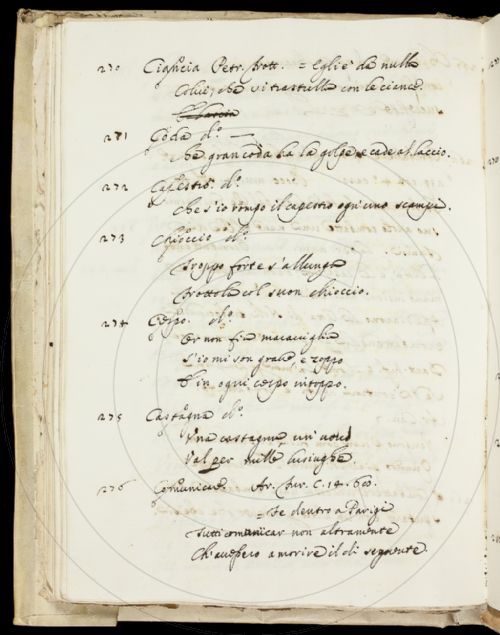 270 Ciancia Petr. Frott. = Egli è da nulla
Colui, che si trastulla con le ciance.
271 Coda d.º —
Che gran coda ha la golpe e cade al laccio.
272 Capestro d.º
Che s'io rompo il capestro ogn'uno scampi.
273 Chioccio d.º
Troppo forte s'allunga
Frottola col suon chioccio.
274 Cespo. d.º
Or non fia maraviglia
S'io mi son grave, e zoppo
E in ogni cespo intoppo.
275 Castagna d.º
Una castagna, un
Val per mille lusinghe
276 Comunicare. Ar. Fur. C. 14. 68.
= Fe dentro a Parigi
Tutti comunicar non altramente
Ch'avessero a morire il dì seguente.